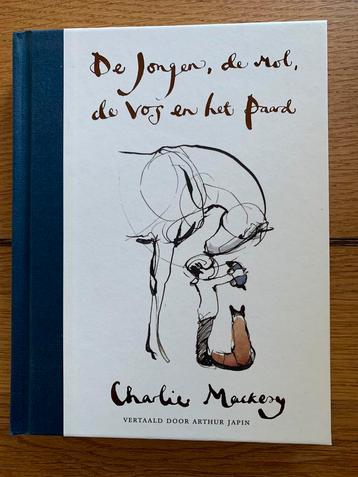 De Jongen, de mol,
de Vos en het Paard
Charlie Mackesy
VERTAALD DOOR ARTHUR JAPIN